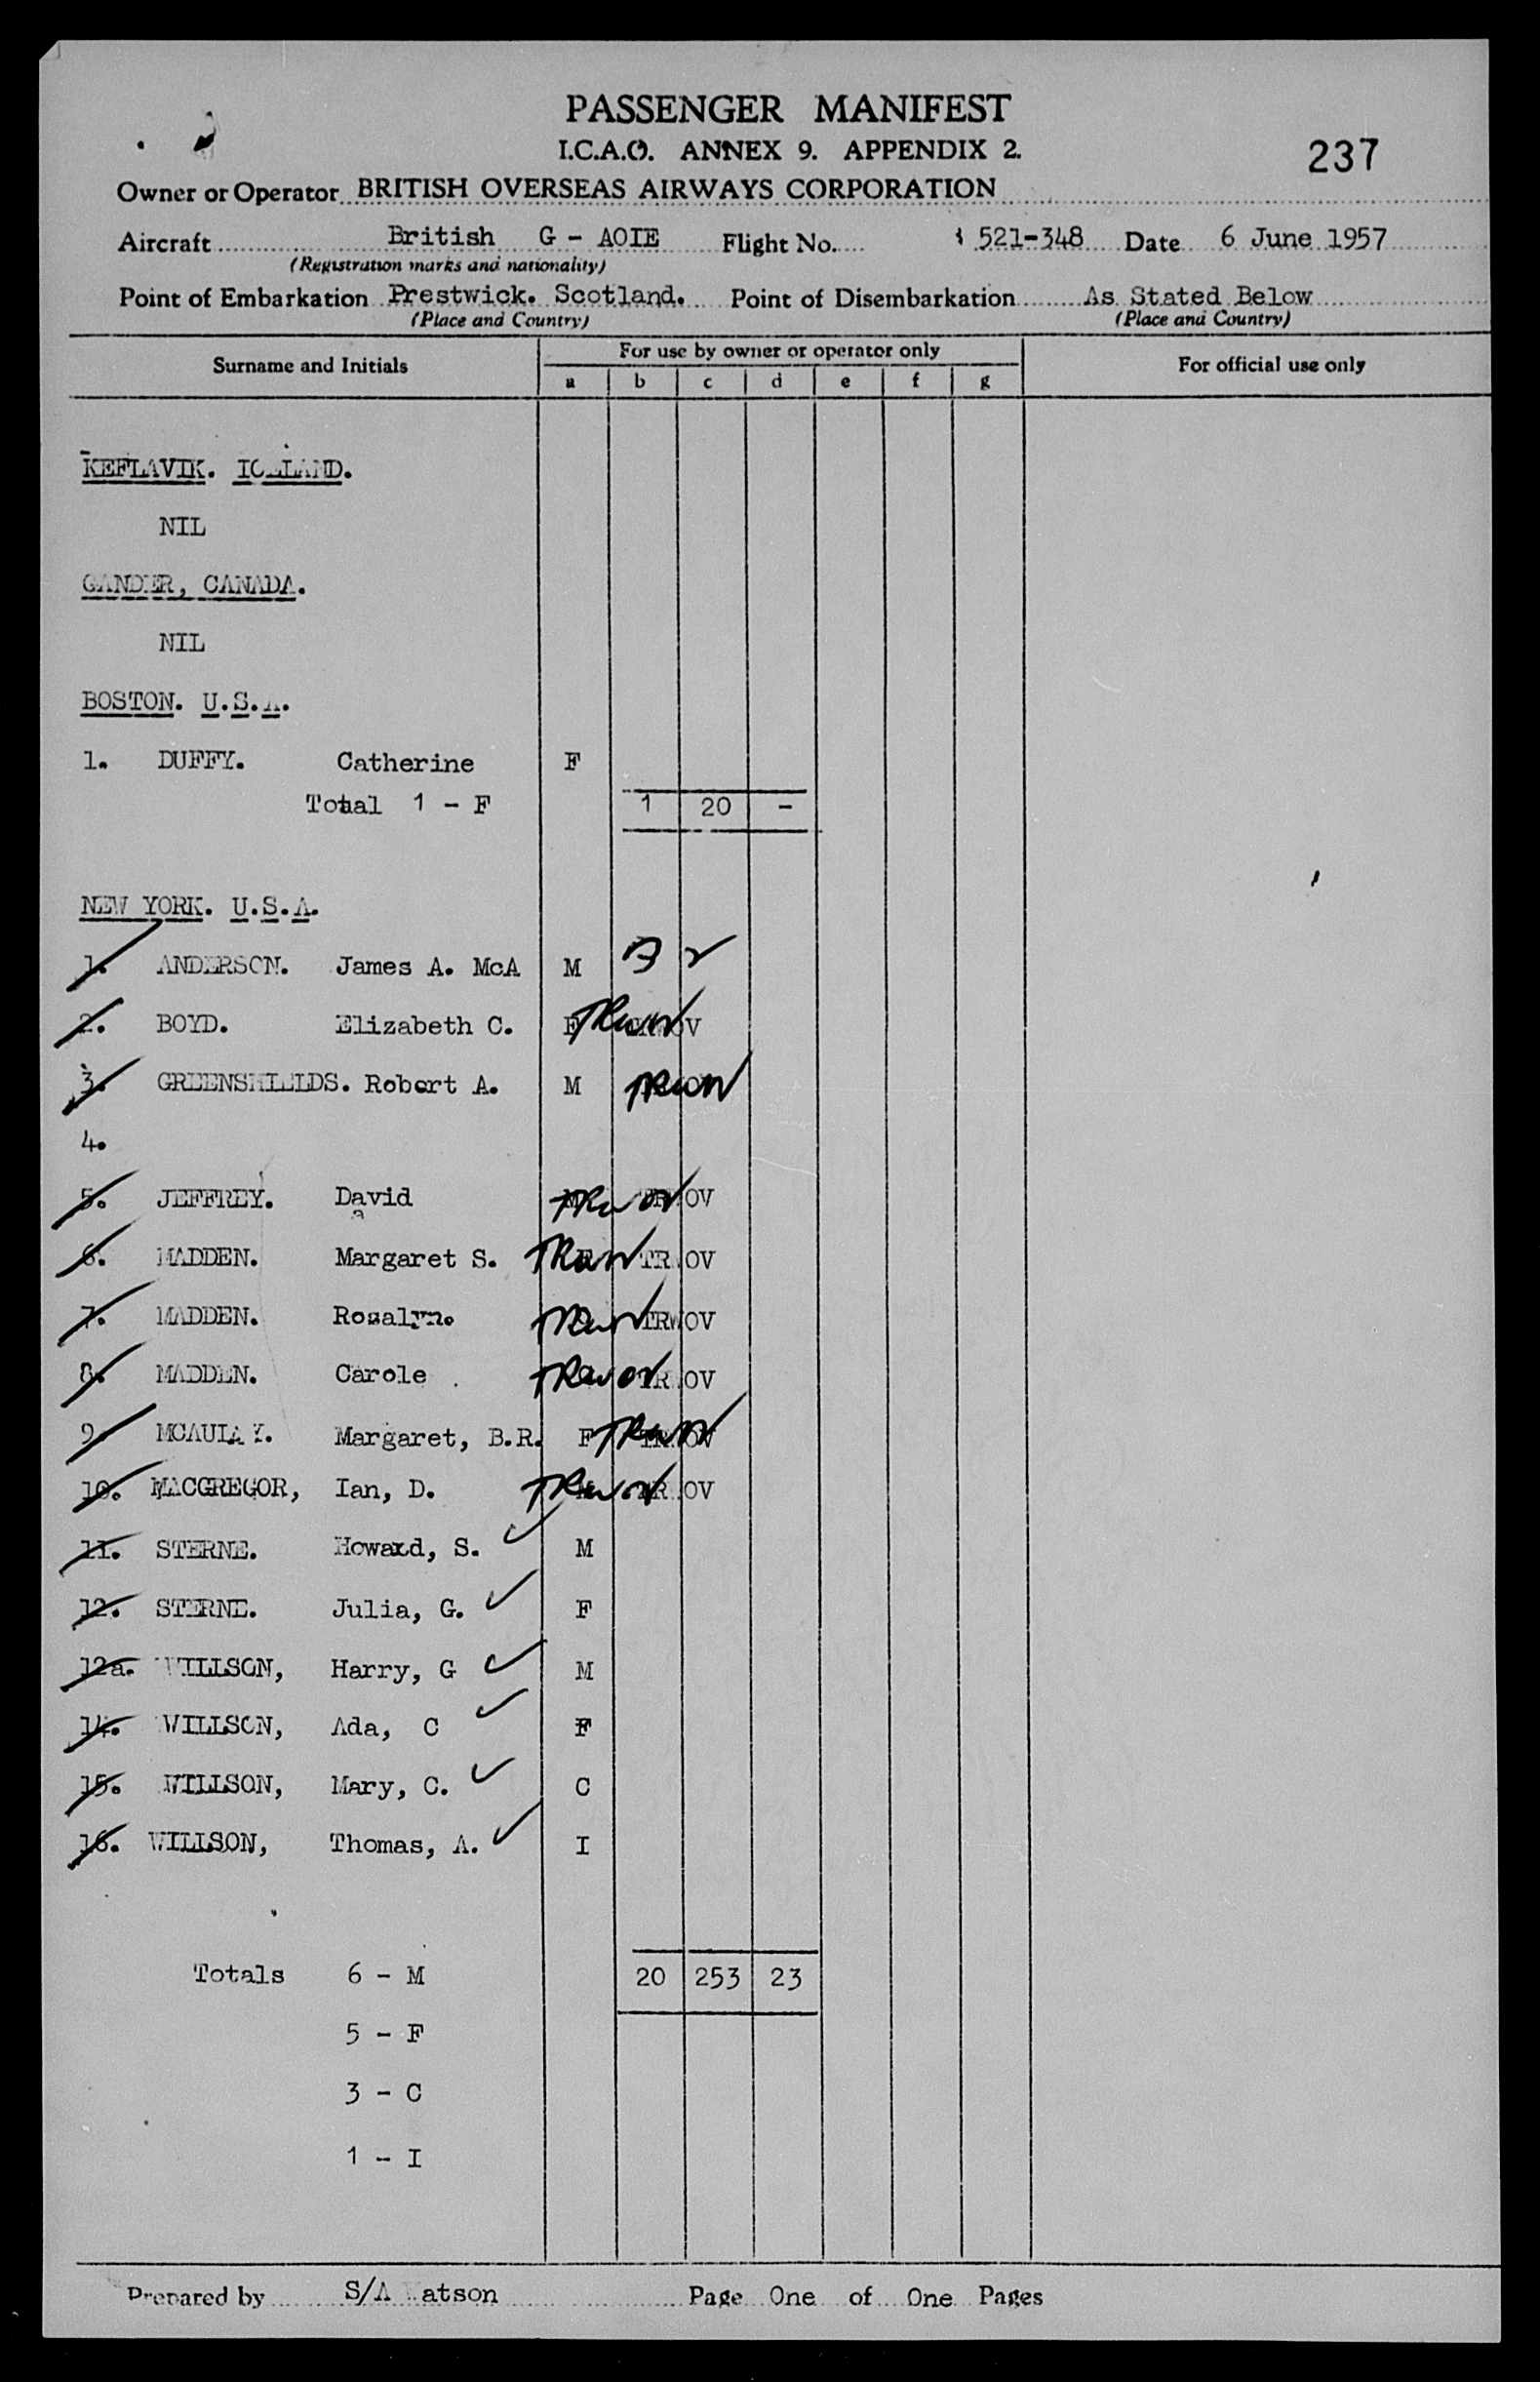 PASSENGER MANIFEST
I.C.A.O. ANNEX 9. APPENDIX 2.
237
Owner or Operator BRITISH OVERSEAS AIRWAYS CORPORATION
Aircraft British G - AOIE Flight No. 521-348 Date 6 June 1957
(Registration marks and nationality)
Point of Embarkation Prestwick. Scotland. Point of Disembarkation As Stated Below
(Place and Country) (Place and Country)
Surname and Initials For use by owner or operator only For official use only
a b c d e f g
KEFLAVIK. ICELAND.
NIL
GANDER, CANADA.
NIL
BOSTON. U.S.A.
1. DUFFY. Catherine F
Total 1 - F 1 20 -
NEW YORK. U.S.A.
1. ANDERSON. James A. McA M B 2
2. BOYD. Elizabeth C. F
3. GREENSHIELDS. Robert A. M
4.
5. JEFFREY. David OV
6. MADDEN. Margaret S. TR OV
7. MADDEN. Rosalyn. TRWOV
8. MADDEN. Carole TR OV
9. MCAULAY. Margaret, B.R. F
10. MACGREGOR, Ian, D. OV
11. STERNE. Howard, S. M
12. STERNE. Julia, G. F
12a. WILLSON, Harry, G M
14. WILLSON, Ada, C F
15. WILLSON, Mary, C. C
16. WILLSON, Thomas, A. I
Totals 6 - M 20 253 23
5 - F
3 - C
1 - I
Prepared by S/A Watson Page One of One Pages